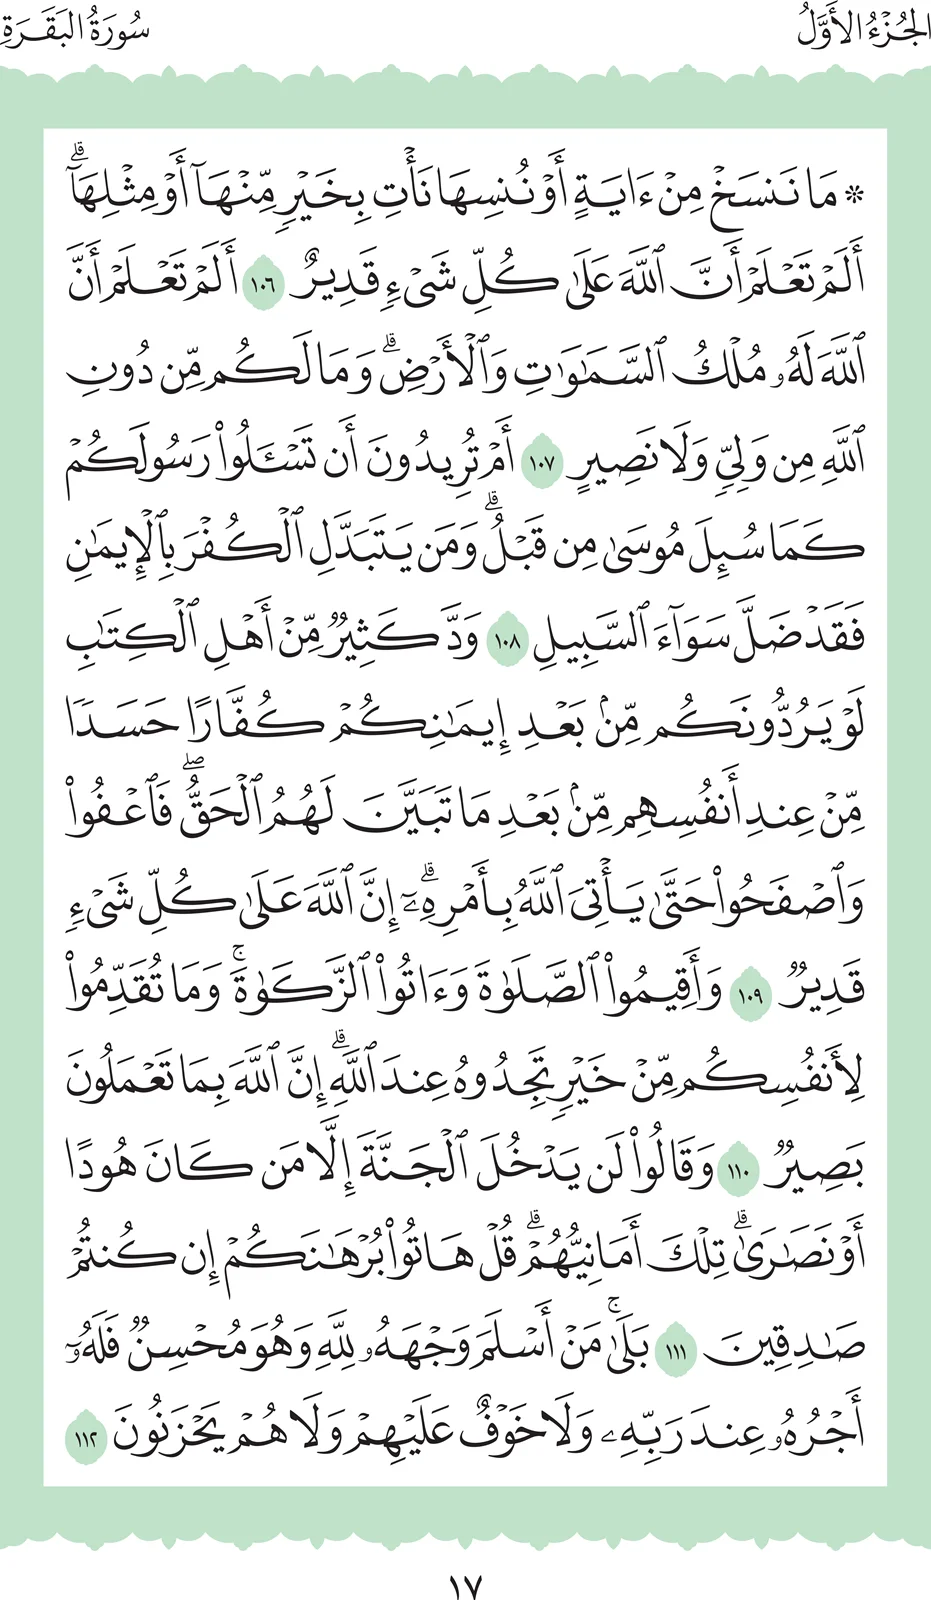 الجُزْءُ الأَوَّلُ
سُورَةُ البَقَرَةِ
* مَا نَنسَخۡ مِنۡ ءَايَةٍ أَوۡ نُنسِهَا نَأۡتِ بِخَيۡرٖ مِّنۡهَآ أَوۡ مِثۡلِهَآۗ
أَلَمۡ تَعۡلَمۡ أَنَّ ٱللَّهَ عَلَىٰ كُلِّ شَيۡءٖ قَدِيرٌ ١٠٦ أَلَمۡ تَعۡلَمۡ أَنَّ
ٱللَّهَ لَهُۥ مُلۡكُ ٱلسَّمَٰوَٰتِ وَٱلۡأَرۡضِۗ وَمَا لَكُم مِّن دُونِ
ٱللَّهِ مِن وَلِيّٖ وَلَا نَصِيرٍ ١٠٧ أَمۡ تُرِيدُونَ أَن تَسۡـَٔلُواْ رَسُولَكُمۡ
كَمَا سُئِلَ مُوسَىٰ مِن قَبۡلُۗ وَمَن يَتَبَدَّلِ ٱلۡكُفۡرَ بِٱلۡإِيمَٰنِ
فَقَدۡ ضَلَّ سَوَآءَ ٱلسَّبِيلِ ١٠٨ وَدَّ كَثِيرٞ مِّنۡ أَهۡلِ ٱلۡكِتَٰبِ
لَوۡ يَرُدُّونَكُم مِّنۢ بَعۡدِ إِيمَٰنِكُمۡ كُفَّارًا حَسَدٗا
مِّنۡ عِندِ أَنفُسِهِم مِّنۢ بَعۡدِ مَا تَبَيَّنَ لَهُمُ ٱلۡحَقُّۖ فَٱعۡفُواْ
وَٱصۡفَحُواْ حَتَّىٰ يَأۡتِيَ ٱللَّهُ بِأَمۡرِهِۦٓۗ إِنَّ ٱللَّهَ عَلَىٰ كُلِّ شَيۡءٖ
قَدِيرٞ ١٠٩ وَأَقِيمُواْ ٱلصَّلَوٰةَ وَءَاتُواْ ٱلزَّكَوٰةَۚ وَمَا تُقَدِّمُواْ
لِأَنفُسِكُم مِّنۡ خَيۡرٖ تَجِدُوهُ عِندَ ٱللَّهِۗ إِنَّ ٱللَّهَ بِمَا تَعۡمَلُونَ
بَصِيرٞ ١١٠ وَقَالُواْ لَن يَدۡخُلَ ٱلۡجَنَّةَ إِلَّا مَن كَانَ هُودًا
أَوۡ نَصَٰرَىٰۗ تِلۡكَ أَمَانِيُّهُمۡۗ قُلۡ هَاتُواْ بُرۡهَٰنَكُمۡ إِن كُنتُمۡ
صَٰدِقِينَ ١١١ بَلَىٰۚ مَنۡ أَسۡلَمَ وَجۡهَهُۥ لِلَّهِ وَهُوَ مُحۡسِنٞ فَلَهُۥٓ
أَجۡرُهُۥ عِندَ رَبِّهِۦ وَلَا خَوۡفٌ عَلَيۡهِمۡ وَلَا هُمۡ يَحۡزَنُونَ ١١٢
١٧